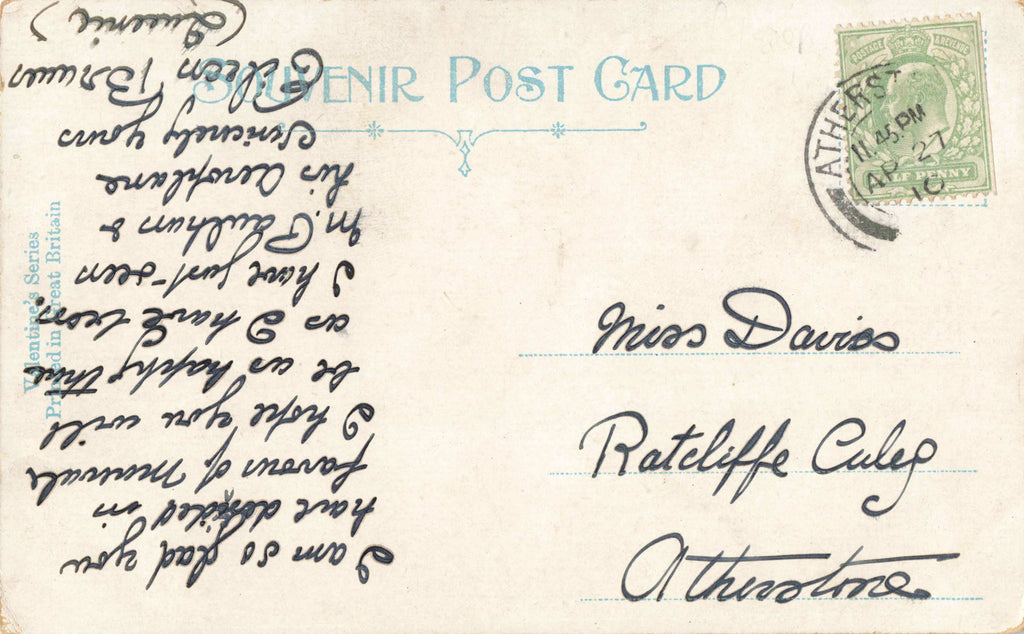 SOUVENIR POST CARD
POSTAGE & REVENUE
HALF PENNY
ATHERST
11 45 PM
AP 27
10
Miss Davies
Ratcliffe Culey
Atherstone
I am so glad you
have decided in
favour of Minervals
I hope you will
be as happy there
as I have been.
I have just seen
M. Paulhan &
his aeroplane
Sincerely yours
Eileen Brown
(Queenie)
Valentine's Series
Printed in Great Britain